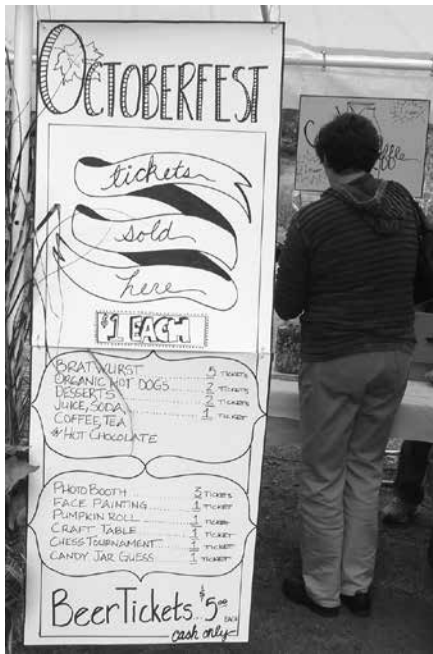 OCTOBERFEST
tickets
sold
here
$1 EACH
BRATWURST 5 TICKETS
ORGANIC HOT DOGS 2 TICKETS
DESSERTS 2 TICKETS
JUICE, SODA, 1 TICKET
COFFEE, TEA
& HOT CHOCOLATE
PHOTO BOOTH 2 TICKETS
FACE PAINTING 1 TICKET
PUMPKIN ROLL 1 TICKET
CRAFT TABLE 1 TICKET
CHESS TOURNAMENT 1 TICKET
CANDY JAR GUESS 1 TICKET
Beer Tickets.. $5.00 EACH
cash only